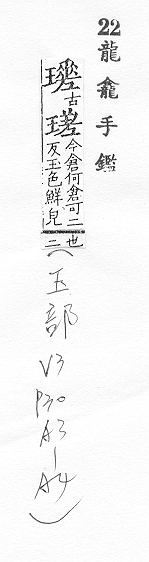 22 龍龕手鑑
古瑳今倉何倉可二反玉色鮮皃也二
(玉部 V3 P30 A3-A4)